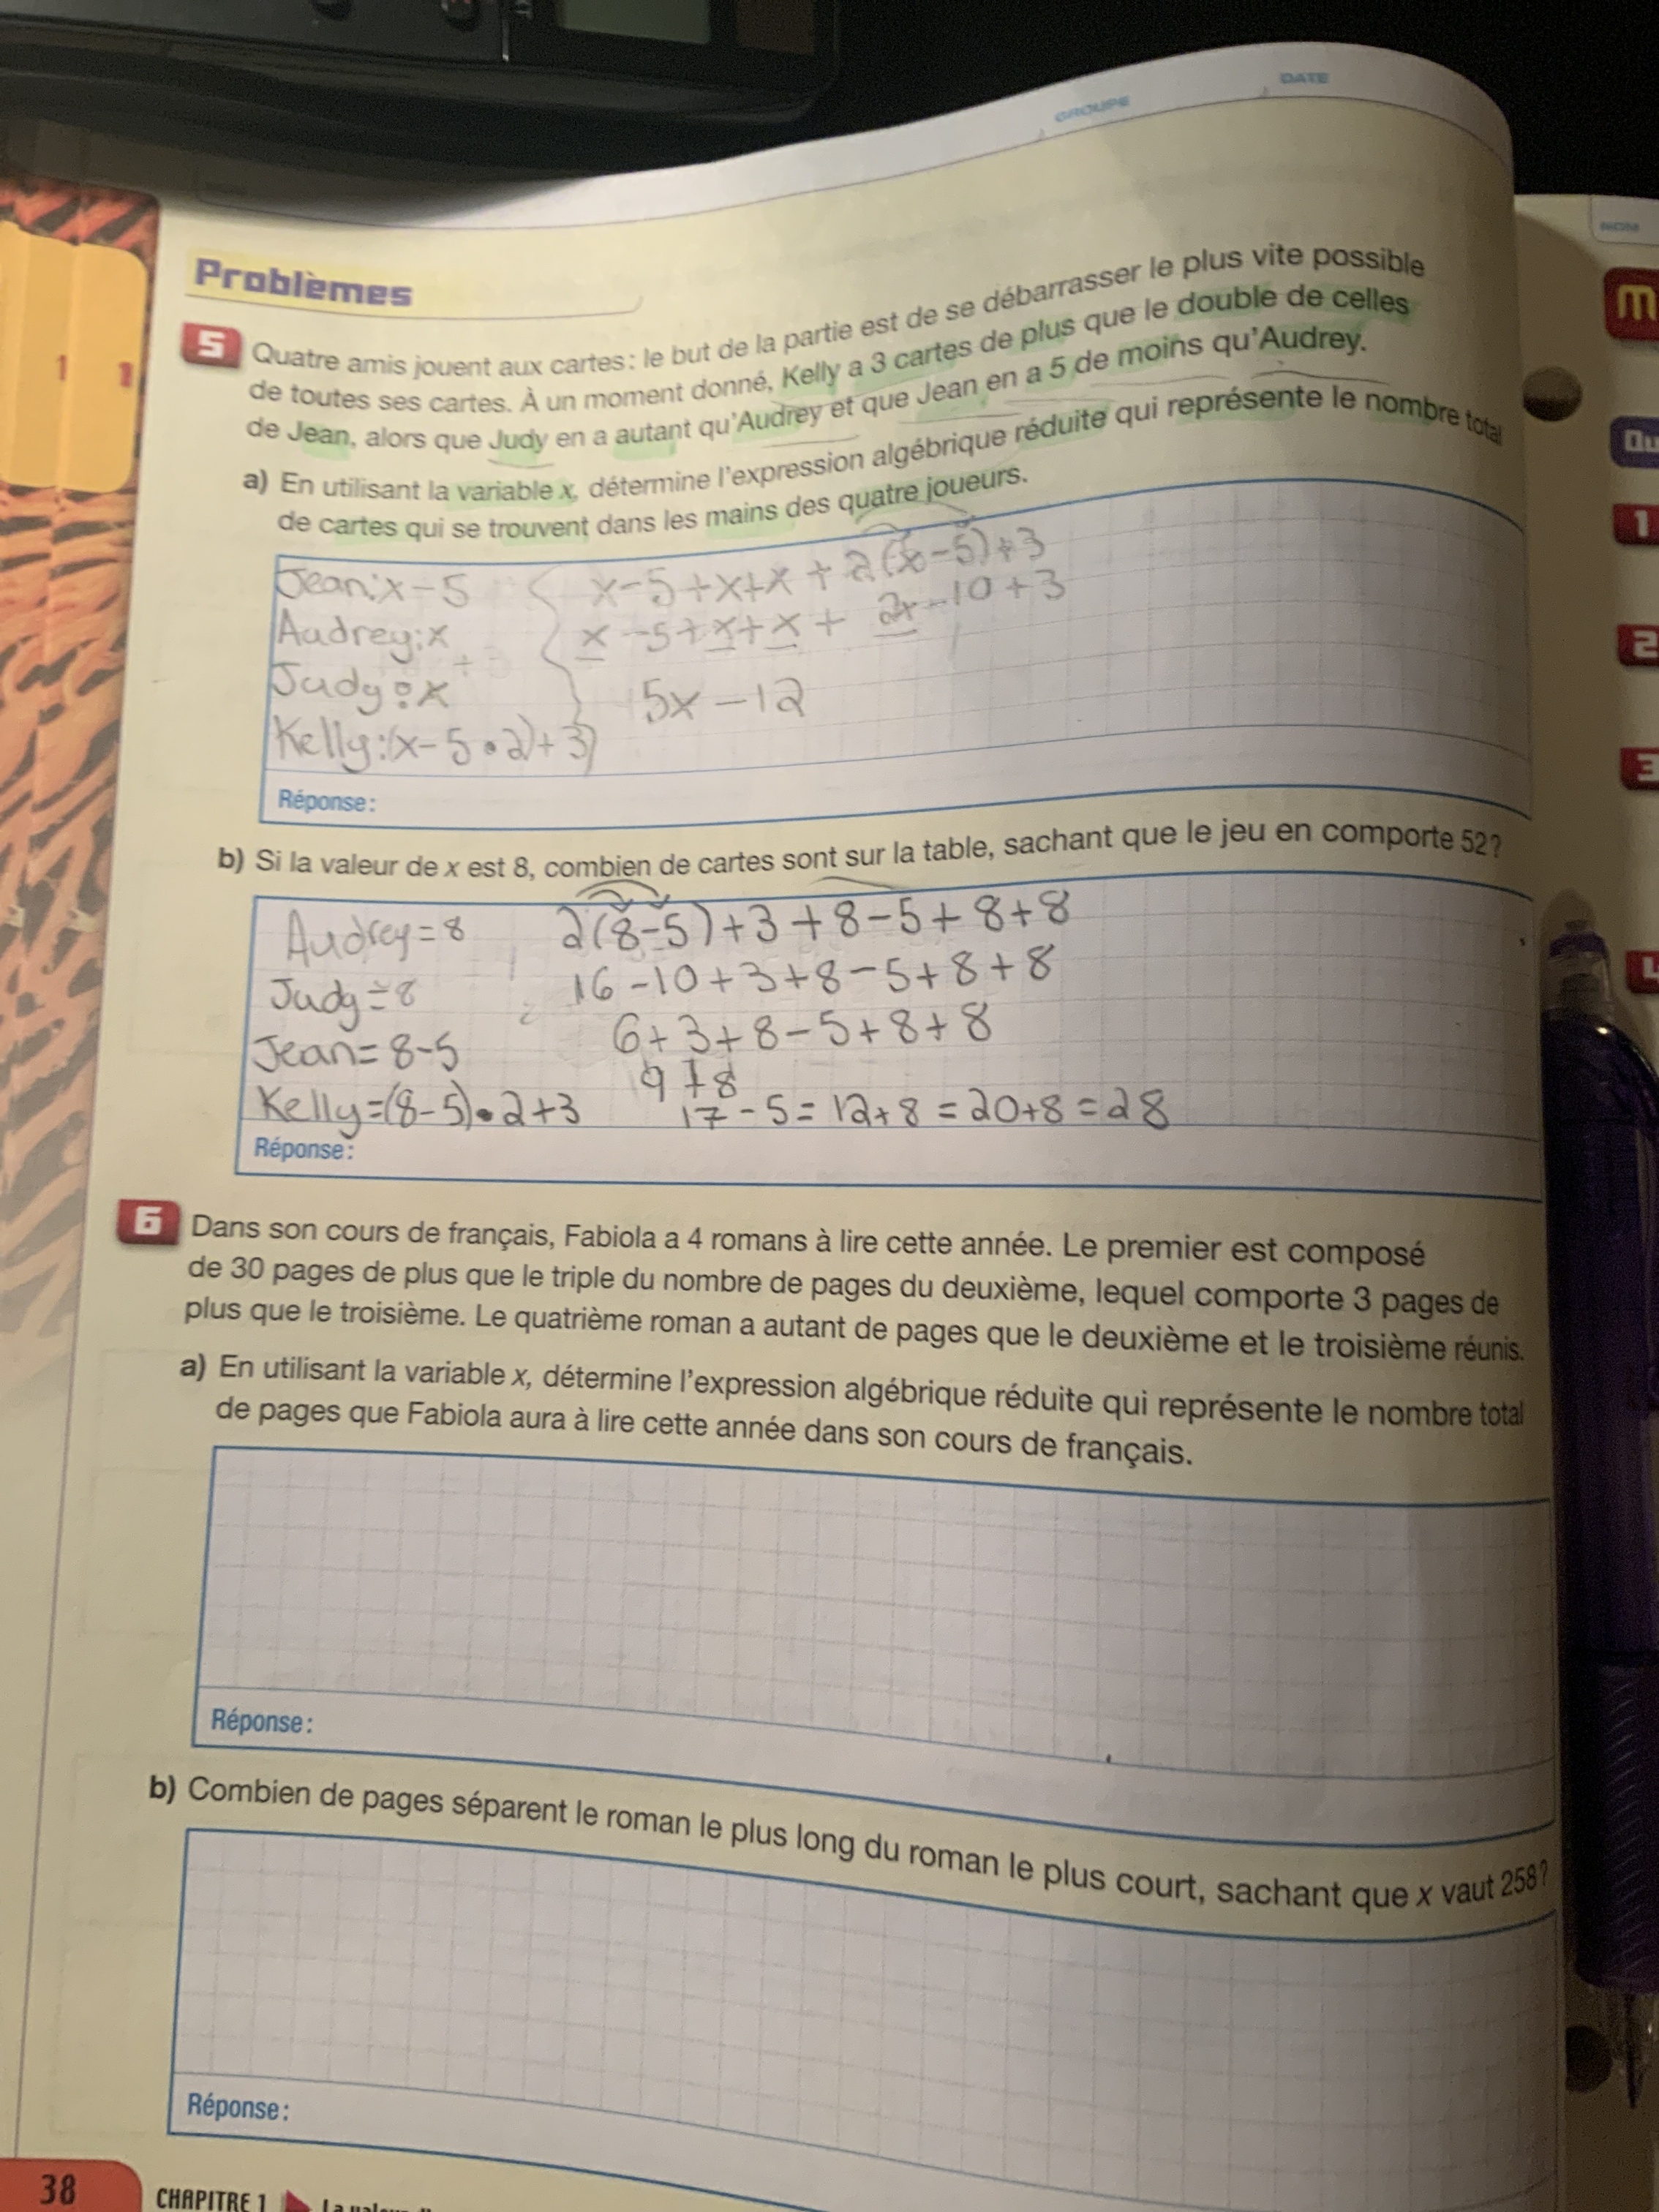 GROUPE
DATE
NOM
Problèmes
1 1
5 Quatre amis jouent aux cartes : le but de la partie est de se débarrasser le plus vite possible
de toutes ses cartes. À un moment donné, Kelly a 3 cartes de plus que le double de celles
de Jean, alors que Judy en a autant qu'Audrey et que Jean en a 5 de moins qu'Audrey.
a) En utilisant la variable x, détermine l'expression algébrique réduite qui représente le nombre total
de cartes qui se trouvent dans les mains des quatre joueurs.
Jean: x-5
Audrey: x
Judy: x
Kelly: (x-5•2)+3)
x-5+x+x+2(x-5)+3
x-5+x+x+2x-10+3
5x-12
Réponse :
b) Si la valeur de x est 8, combien de cartes sont sur la table, sachant que le jeu en comporte 52?
Audrey=8
Judy=8
Jean=8-5
Kelly=(8-5)•2+3
2(8-5)+3+8-5+8+8
16-10+3+8-5+8+8
6+3+8-5+8+8
9+8
17-5=12+8=20+8=28
Réponse :
6 Dans son cours de français, Fabiola a 4 romans à lire cette année. Le premier est composé
de 30 pages de plus que le triple du nombre de pages du deuxième, lequel comporte 3 pages de
plus que le troisième. Le quatrième roman a autant de pages que le deuxième et le troisième réunis.
a) En utilisant la variable x, détermine l'expression algébrique réduite qui représente le nombre total
de pages que Fabiola aura à lire cette année dans son cours de français.
Réponse :
b) Combien de pages séparent le roman le plus long du roman le plus court, sachant que x vaut 258?
Réponse :
38 CHAPITRE 1
1
2
3